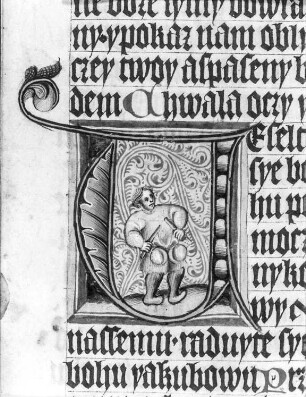 ne boze
ny ypokaz nam obli
czey twoy aspaseny b
dem Chwala oczy y
UEselc
sye bo
hu po
mocz
nyko
wy
nassemu raduyte sye
bohu yakubowu Prz